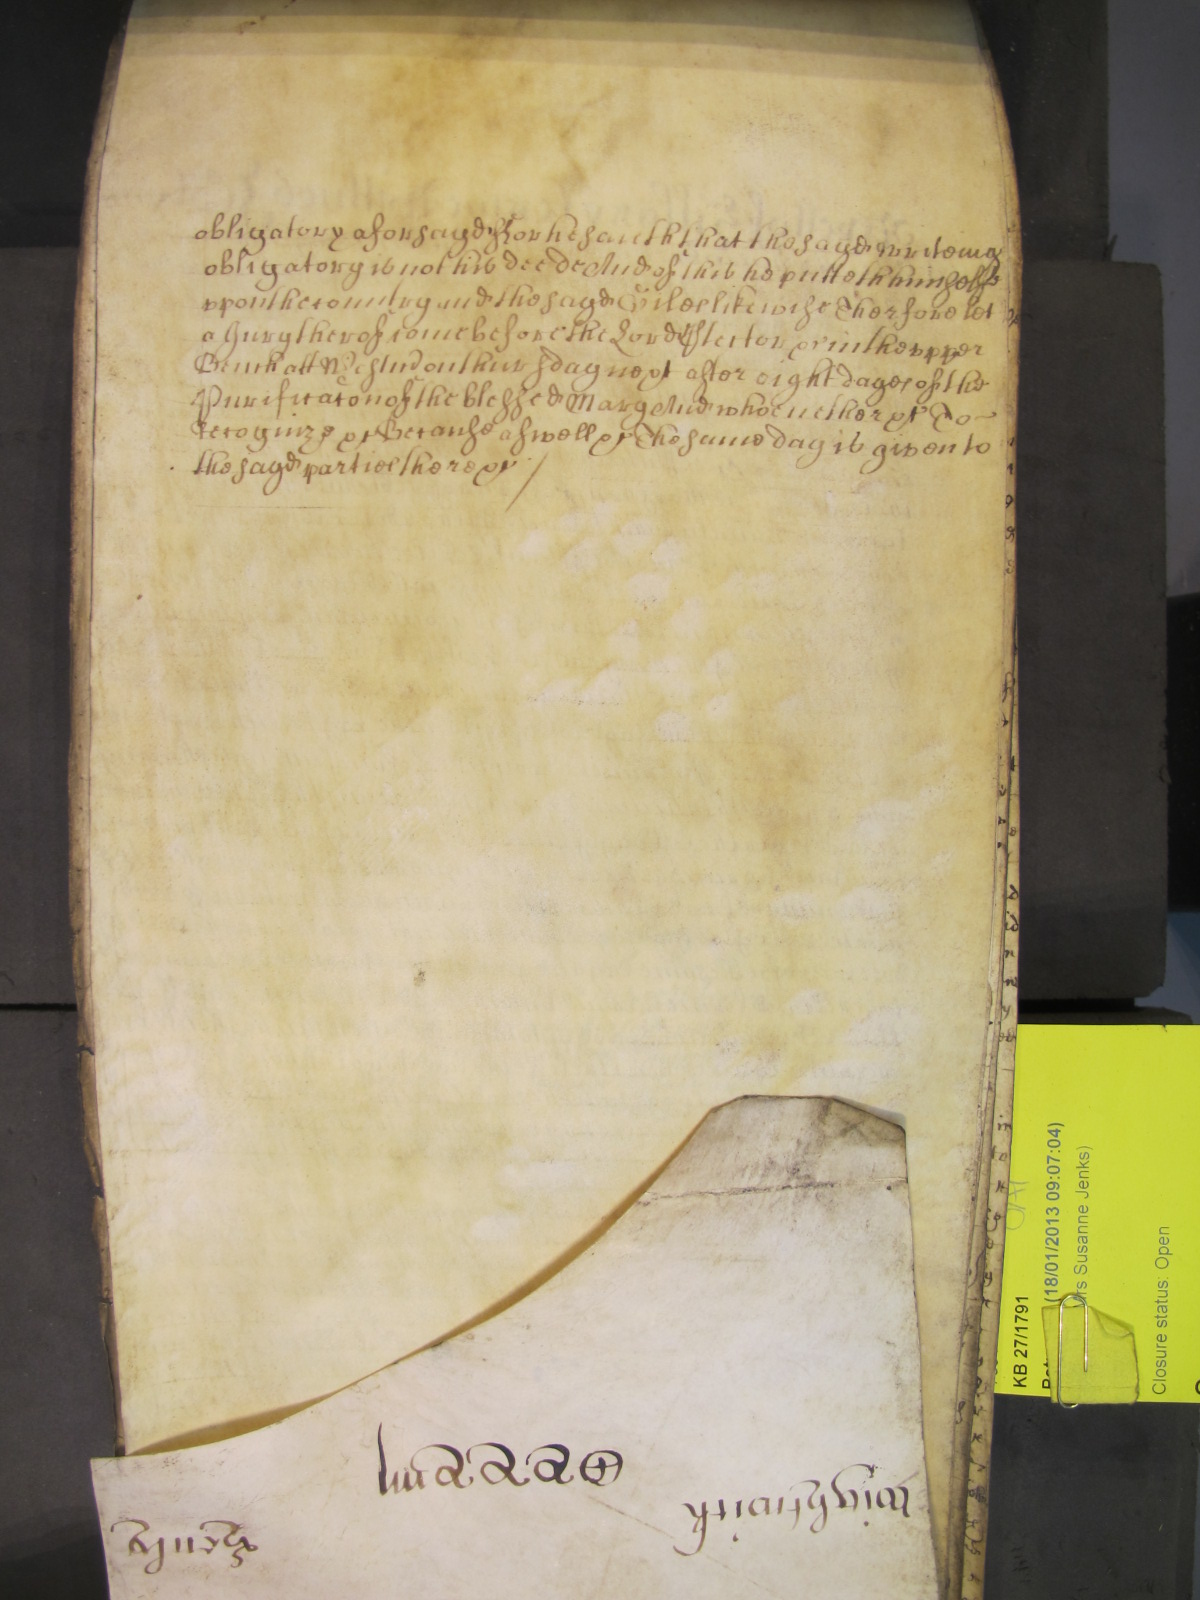 obligatory aforsayd For he saieth that the sayd writeing
obligatory is not his deede And of this he putteth himselfe
vpon the countrey and the sayd Giles likewise Therfore let
a Jury therof come before the Lord Protector in the vpper
Bench att Westm̃ on thursday next after eight dayes of the
Purificac̃on of the blessed Mary And who neither &c To
recognize &c Because aswell &c The same day is given to
the sayd parties there &c /
KB 27/1791
(18/01/2013 09:07:04)
Mrs Susanne Jenks)
Closure status: Open
Wightwick
Henly